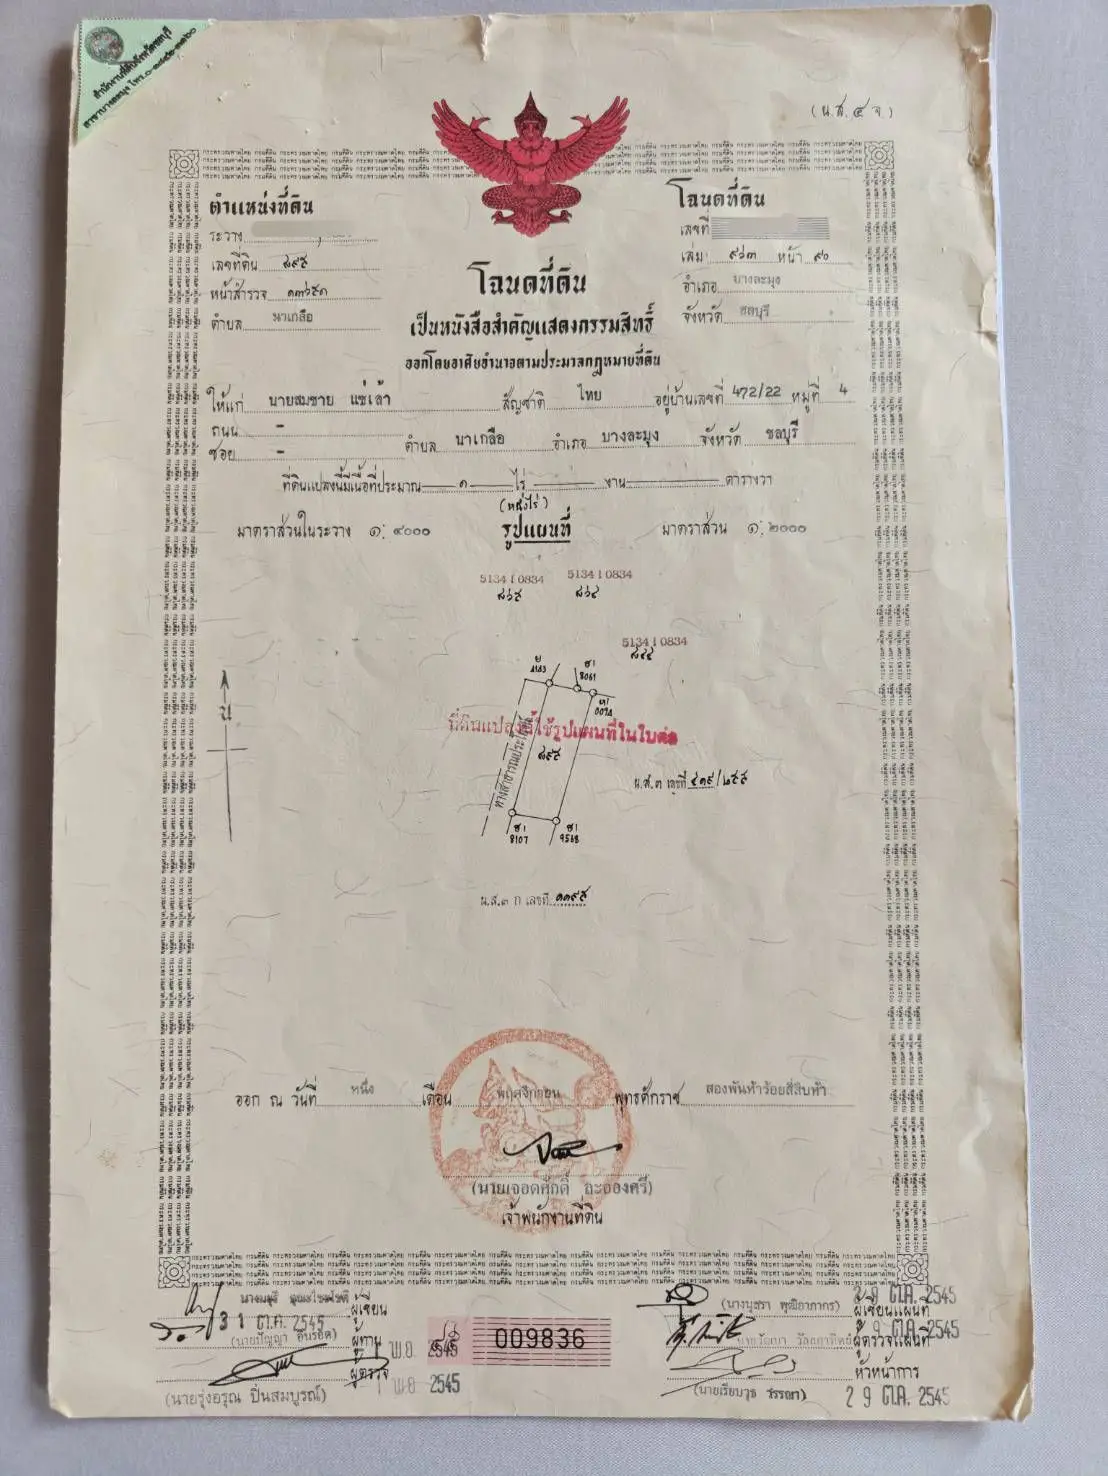 สำนักงานที่ดินจังหวัดชลบุรี
(น.ส.๔ จ.)
ตำแหน่งที่ดิน
ระวาง
เลขที่ดิน ๘๙๕
หน้าสำรวจ ๑๓๖๙๑
ตำบล นาเกลือ
โฉนดที่ดิน
เลขที่
เล่ม ๙๖๓ หน้า ๙๐
อำเภอ บางละมุง
จังหวัด ชลบุรี
โฉนดที่ดิน
เป็นหนังสือสำคัญแสดงกรรมสิทธิ์
ออกโดยอาศัยอำนาจตามประมวลกฎหมายที่ดิน
ให้แก่ นายสมชาย แซ่เล้า สัญชาติ ไทย อยู่บ้านเลขที่ 472/22 หมู่ที่ 4
ถนน -
ซอย - ตำบล นาเกลือ อำเภอ บางละมุง จังหวัด ชลบุรี
ที่ดินแปลงนี้มีเนื้อที่ประมาณ ๑ ไร่ - งาน - ตารางวา
(หนึ่งไร่)
มาตราส่วนในระวาง ๑:๔๐๐๐ รูปแผนที่ มาตราส่วน ๑:๒๐๐๐
5134 I 0834 5134 I 0834
5134 I 0834
น
ที่ดินแปลงนี้ใช้รูปแผนที่ในใบต่อ
ทางสาธารณประโยชน์
๘๙๕
8107 9568
น.ส.๓ เลขที่
น.ส.๓ ก เลขที่ ๑๑๙๕
ออก ณ วันที่ หนึ่ง เดือน พฤศจิกายน พุทธศักราช สองพันห้าร้อยสี่สิบห้า
เจ้าพนักงานที่ดิน
ผู้เขียน
31 ต.ค. 2545
ผู้ทาน
พ.ย. 2545
ผู้ตรวจ
พ.ย. 2545
(นายรุ่งอรุณ ปิ่นสมบูรณ์)
009836
29 ต.ค. 2545
ผู้เขียนแผนที่
29 ต.ค. 2545
ผู้ตรวจแผนที่
หัวหน้าการ
29 ต.ค. 2545